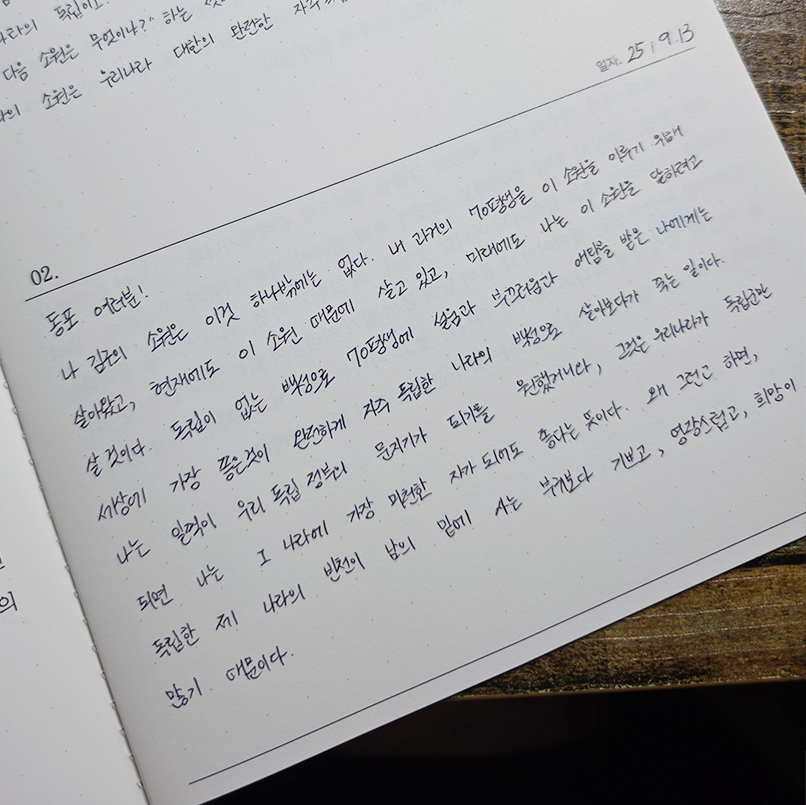 나라의 독립이오
다음 소원은 무엇이냐?" 하는
나의 소원은 우리나라 대한의 완전한 자주
일자. 25 . 9. 13
02.
동포 여러분!
나 김구의 소원은 이것 하나밖에는 없다. 내 과거의 70평생을 이 소원을 이루기 위해
살아왔고, 현재에도 이 소원 때문에 살고 있고, 미래에도 나는 이 소원을 달하려고
살 것이다. 독립이 없는 백성으로 70평생에 설움과 부끄러움과 애탐을 받은 나에게는
세상에 가장 좋은것이 완전하게 자주 독립한 나라의 백성으로 살아보다가 죽는 일이다.
나는 일찍이 우리 독립 정부의 문지기가 되기를 원했거니와, 그것은 우리나라가 독립국만
되면 나는 그 나라에 가장 미천한 자가 되어도 좋다는 뜻이다. 왜 그런고 하면,
독립한 제 나라의 빈천이 남의 밑에 사는 부귀보다 기쁘고, 영광스럽고, 희망이
많기 때문이다.
의